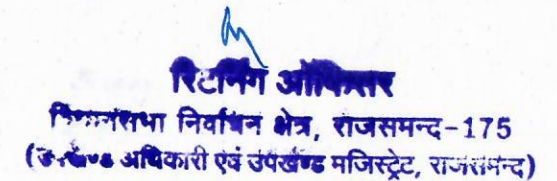 रिटर्निंग ऑफिसर
विधानसभा निर्वाचन क्षेत्र, राजसमन्द-175
(उपखण्ड अधिकारी एवं उपखण्ड मजिस्ट्रेट, राजसमन्द)